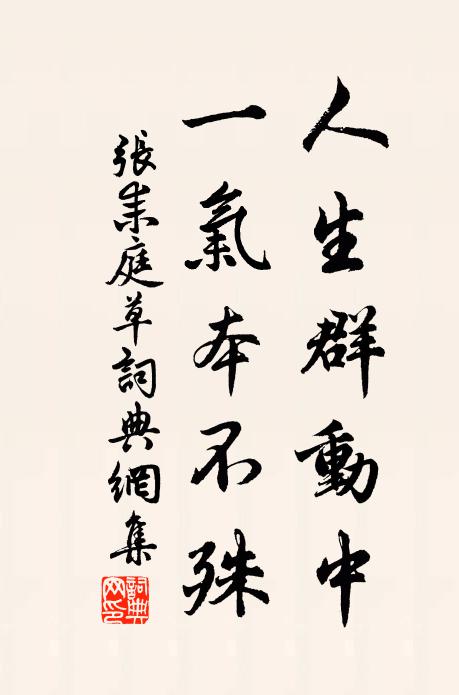 人生群動中
一氣本不殊
張耒庭草詞典網集
詞典网印